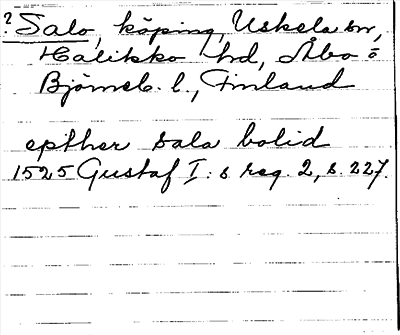 ? Salo, köping, Uskela sn,
Halikko hd, Åbo o
Björneb. l., Finland
epther Sala bolid
1525 Gustaf I:s reg. 2, s. 227.